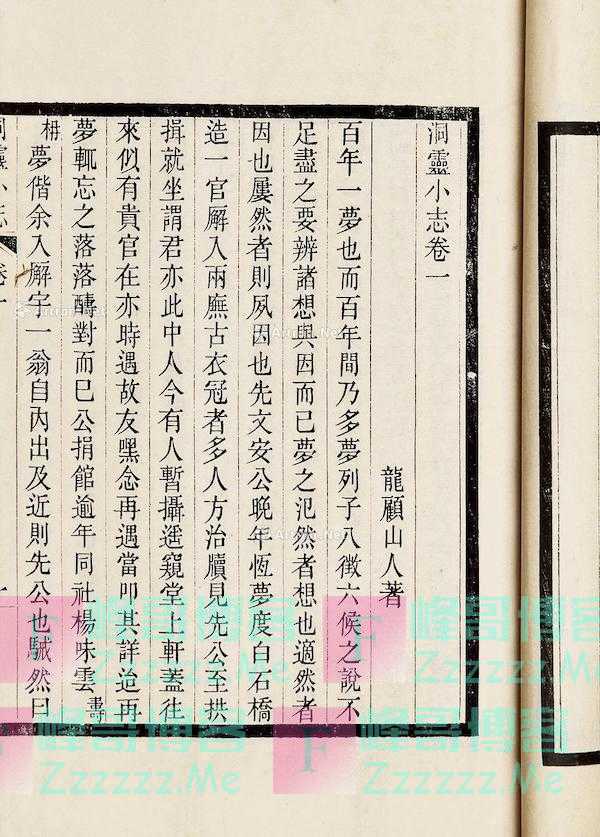 洞靈小志卷一
龍顧山人著
百年一夢也而百年間乃多夢列子八徵六候之說不
足盡之要辨諸想與因而已夢之氾然者想也適然者
因也屢然者則夙因也先文安公晚年恆夢度白石橋
造一官廨入兩廡古衣冠者多人方治牘見先公至拱
揖就坐謂君亦此中人今有人暫攝遙窺堂上軒蓋往
來似有貴官在亦時遇故友嘿念再遇當叩其詳迨再
夢輒忘之落落醻對而已公捐館逾年同社楊味雲壽
枏夢偕余入廨宇一翁自內出及近則先公也駴然曰
洞靈小志
峰哥博客
Zzzzzz.Me
F
峰哥博客
Zzzzzz.Me
峰哥博客
Zzzzzz.Me
F
峰哥博客
Zzzzzz.Me